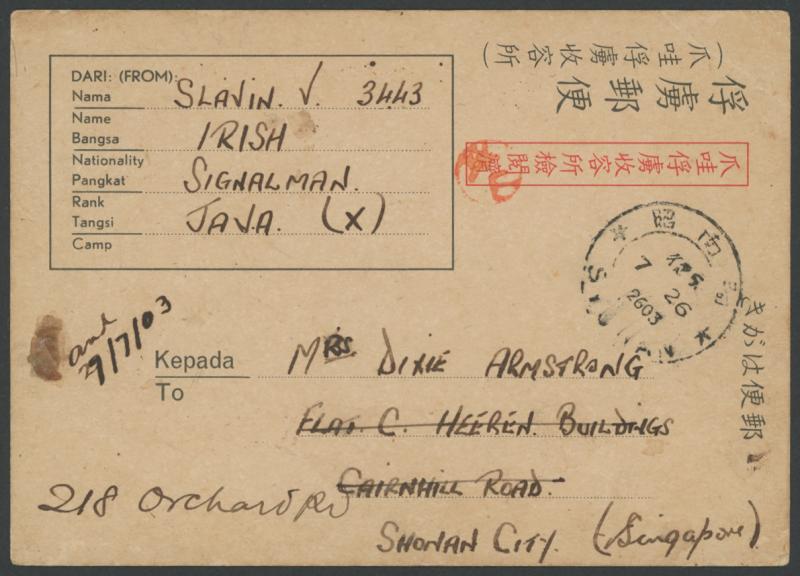 DARI: (FROM):
Nama SLAVIN. V. 3443
Name
Bangsa IRISH
Nationality
Pangkat SIGNALMAN.
Rank
Tangsi JAVA. (X)
Camp
(爪哇俘虜收容所)
俘虜郵便
爪哇俘虜收容所檢閱
昭南
7 26
2603
きがは便郵
9/7/03
Kepada MRS. DIXIE ARMSTRONG
To
FLAT. C. HEEREN. BUILDINGS
CAIRNHILL ROAD.
218 Orchard Rd
SHONAN CITY. (Singapore)